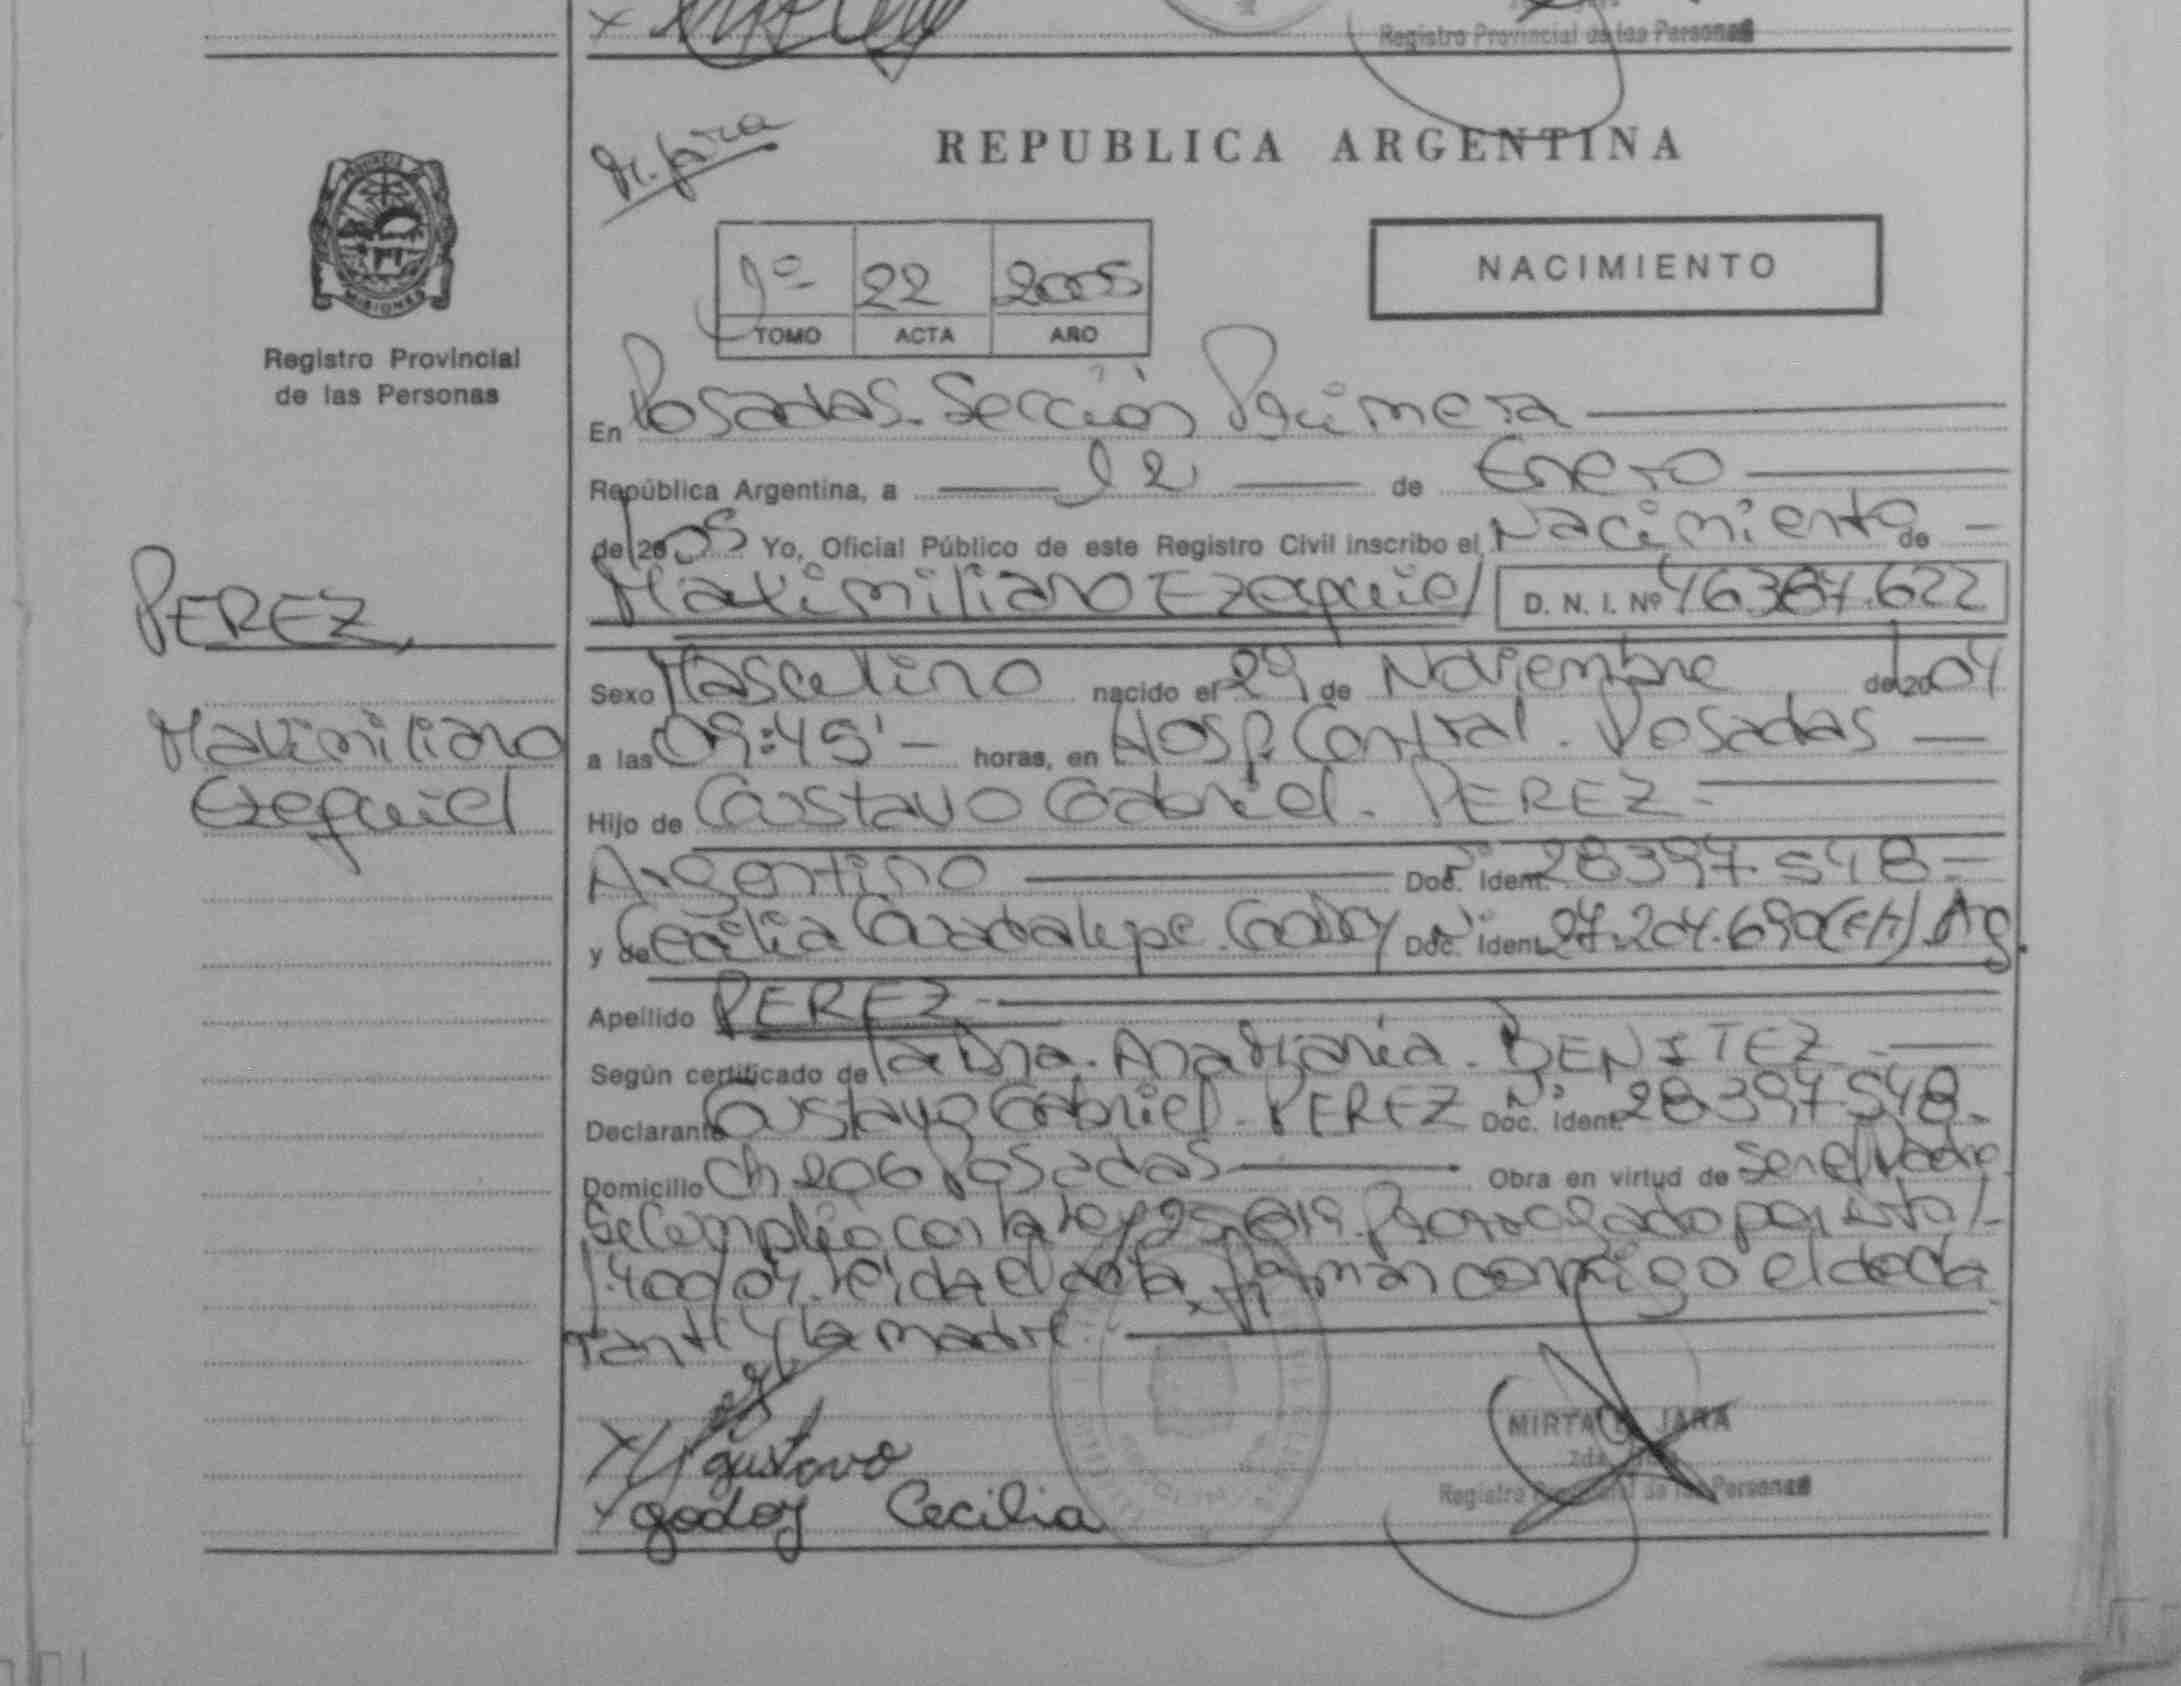 Registro Provincial de las Personas
REPUBLICA ARGENTINA
PROVINCIA
MISIONES
Registro Provincial
de las Personas
1º 22 2005
TOMO ACTA AÑO
NACIMIENTO
En Posadas. Sección Primera
República Argentina, a 12 de Enero
de 2005 Yo, Oficial Público de este Registro Civil inscribo el Nacimiento de
Maximiliano Ezequiel D. N. I. Nº 46.387.622
PEREZ,
Maximiliano
Ezequiel
Sexo Masculino nacido el 29 de Noviembre de 2004
a las 09:45' horas, en Hosp. Central. Posadas
Hijo de Gustavo Gabriel. PEREZ
Argentino Doc. Ident. Nº 28.397.548
y de Cecilia Guadalupe. Godoy Doc. Ident. Nº 27.204.690 Arg.
Apellido PEREZ
Según certificado de la Dra. Ana María. BENITEZ
Declarante Gustavo Gabriel. PEREZ Doc. Ident. Nº 28.397.548
Domicilio Ch 206 Posadas Obra en virtud de ser el Padre
Se Cumplió con la ley 25.819. Prorrogado por
1.400/04. leída el acta, firman conmigo el decla
rante y la madre.
gustavo
godoy Cecilia
MIRTA JARA
Registro Provincial de las Personas